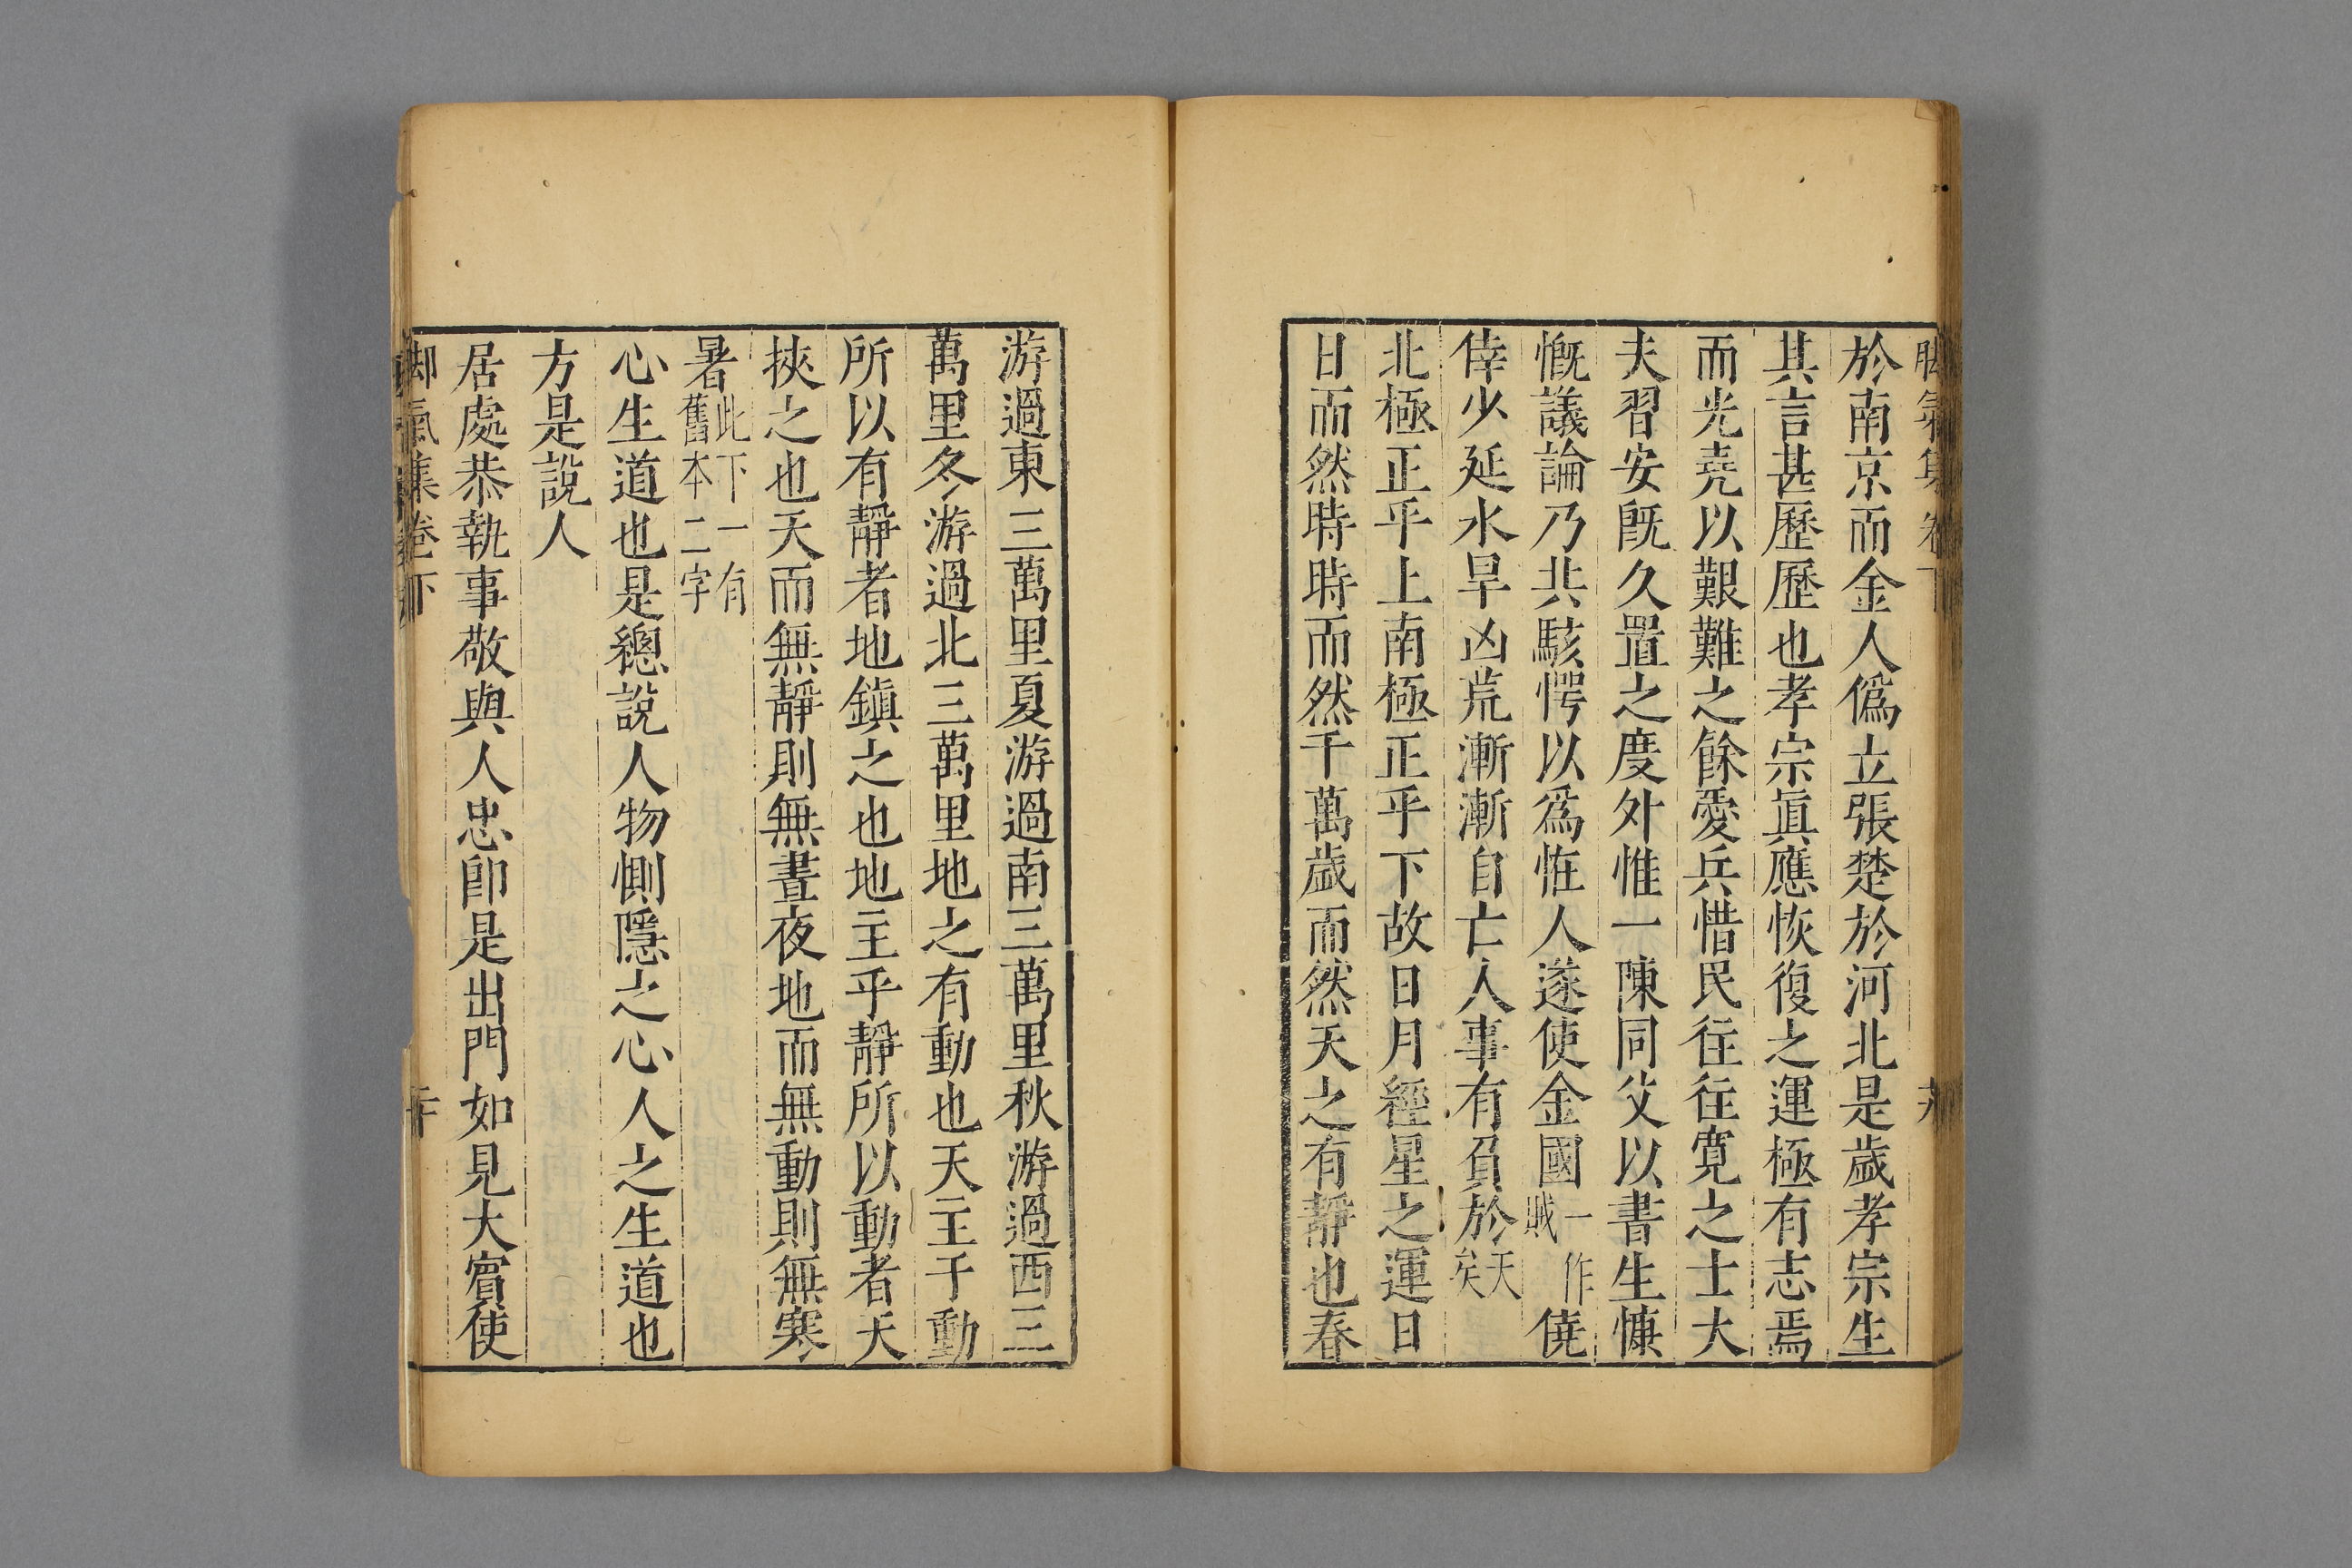 於南京而金人僞立張楚於河北是歲孝宗生
其言甚歷歷也孝宗眞應恢復之運極有志焉
而光堯以艱難之餘愛兵惜民往往寛之士大
夫習安旣久置之度外惟一陳同父以書生慷
慨議論乃共駭愕以爲恠人遂使金國一作賊僥
倖少延水旱凶荒漸漸自亡人事有負於天矣
北極正乎上南極正乎下故日月經星之運日
日而然時時而然千萬歲而然天之有靜也春
游過東三萬里夏游過南三萬里秋游過西三
萬里冬游過北三萬里地之有動也天主于動
所以有靜者地鎮之也地主乎靜所以動者天
挾之也天而無靜則無晝夜地而無動則無寒
暑此下一有舊本二字
心生道也是總說人物惻隱之心人之生道也
方是說人
居處恭執事敬與人忠卽是出門如見大賓使
脚氣集卷下
二十